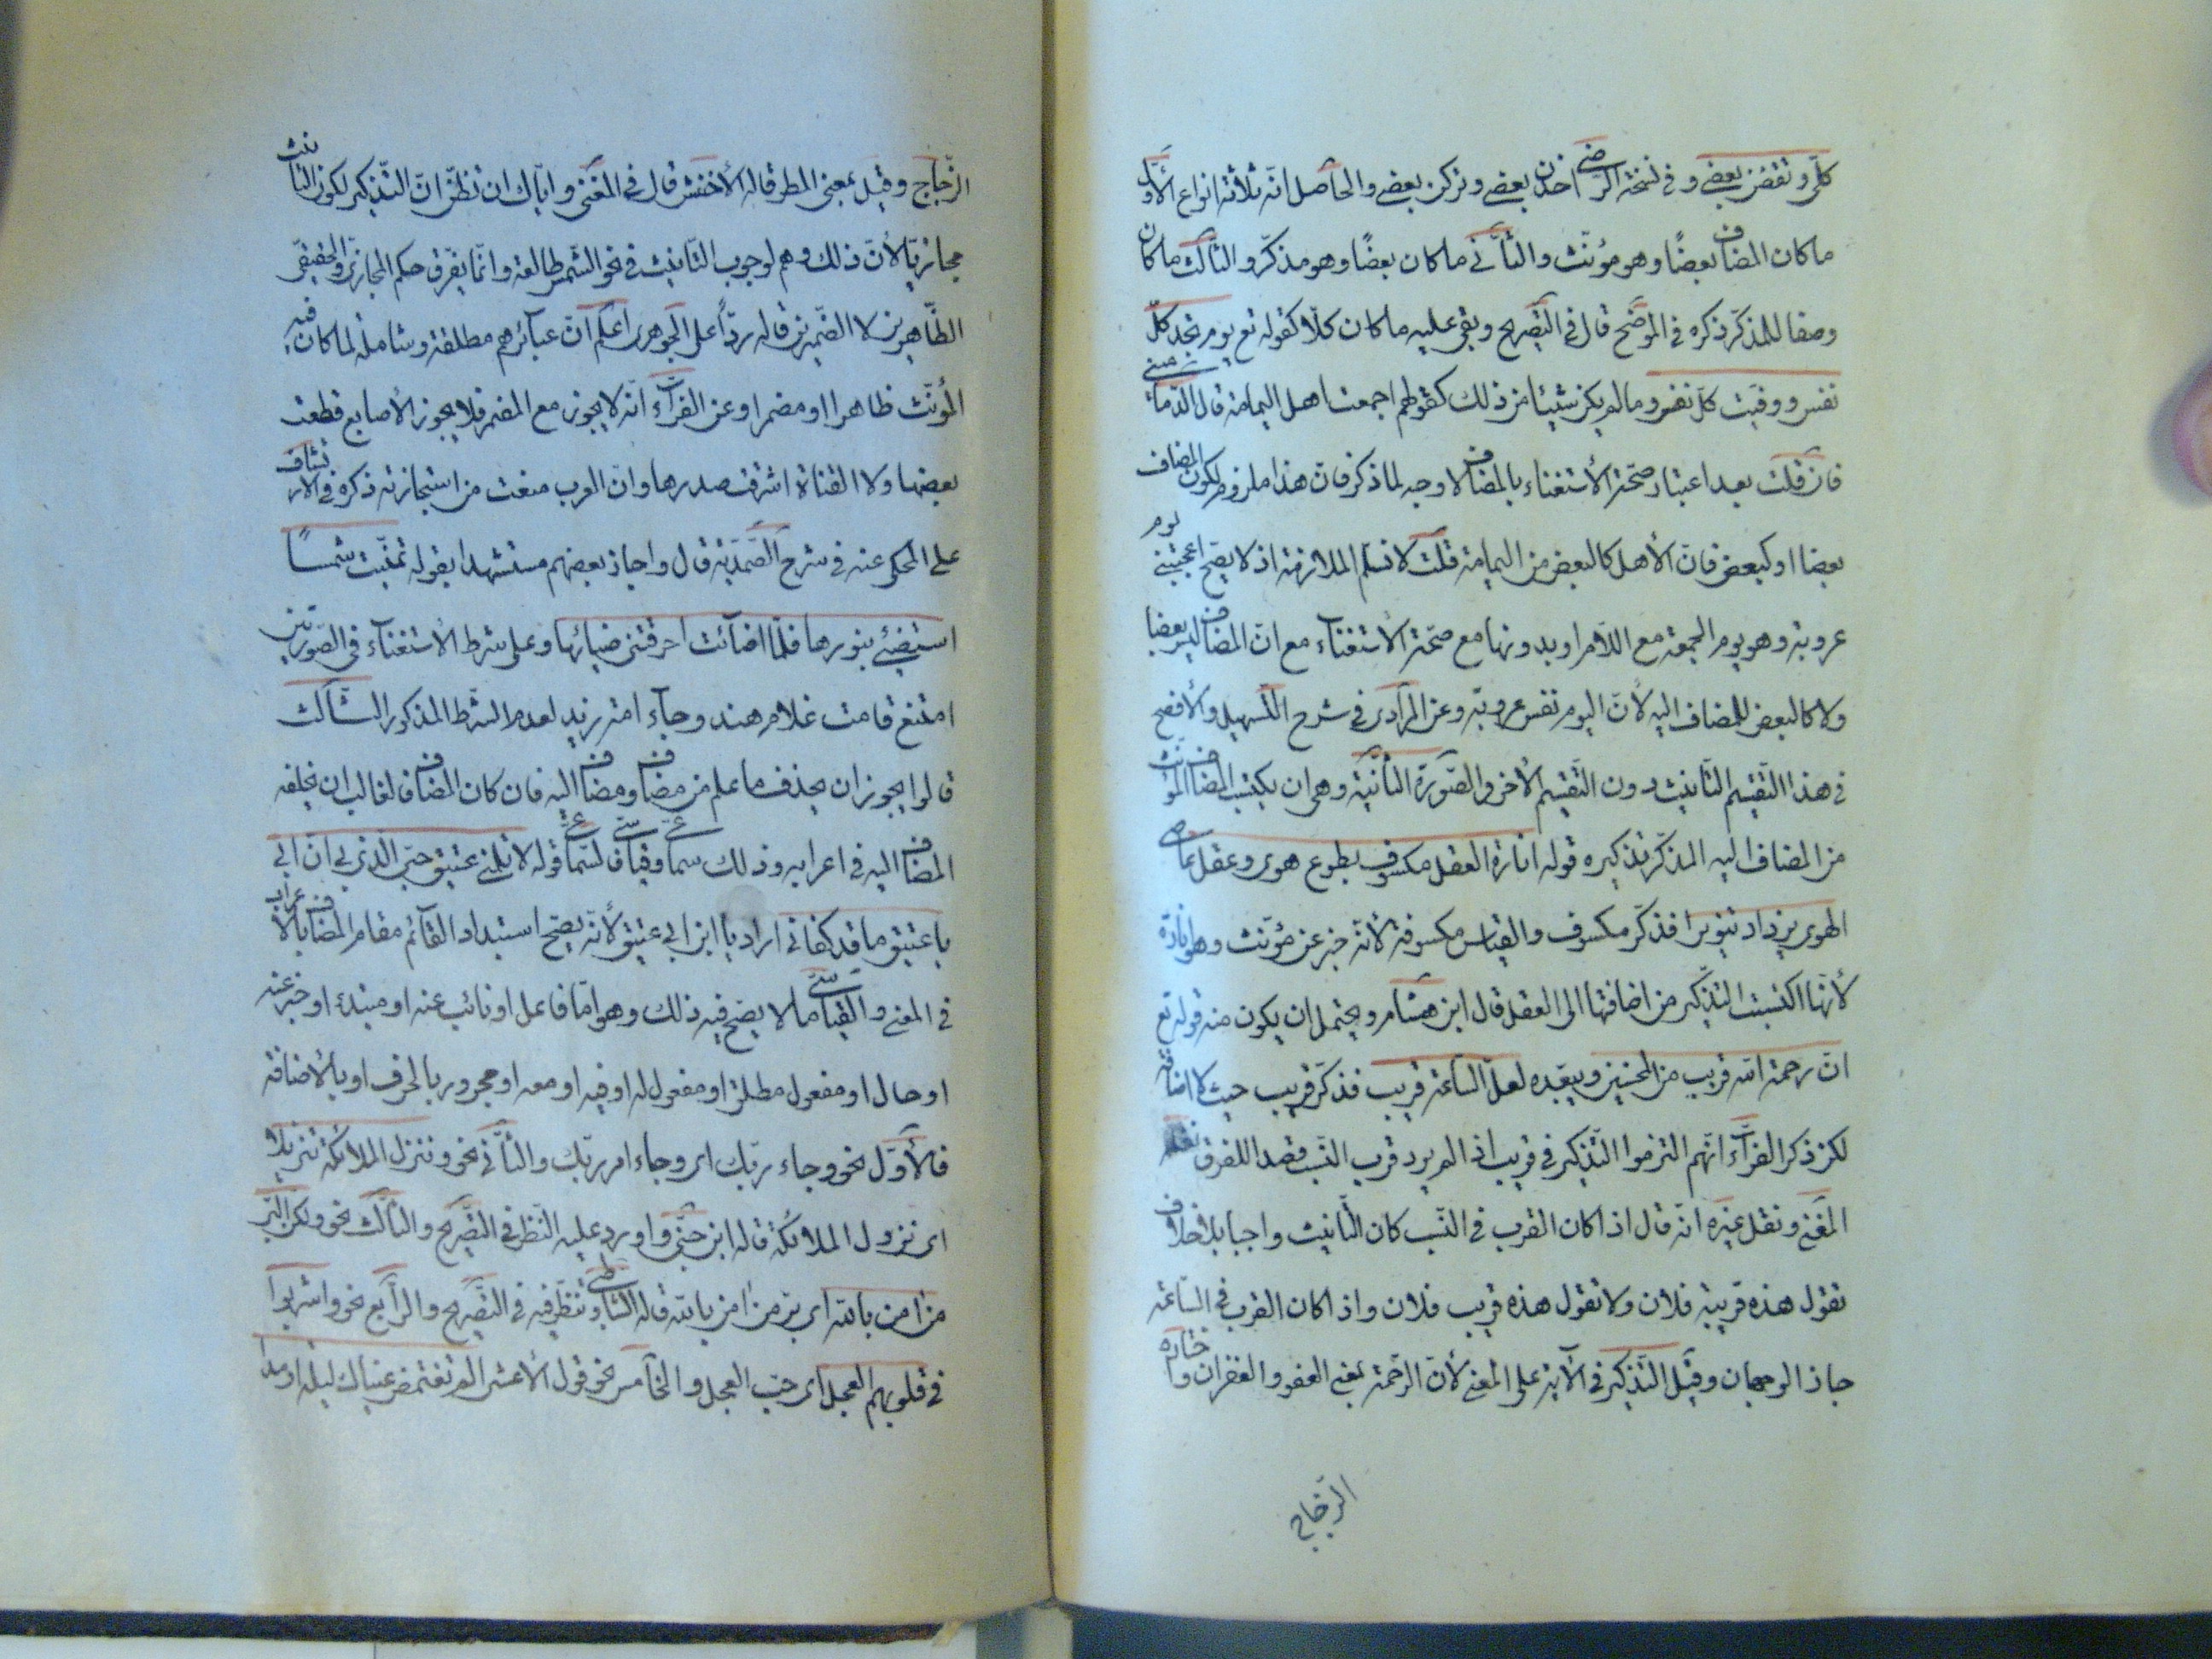 كلّى ونقضن بعضى وفى نسخة الرضى اخذن بعضى وتركن بعضى والحاصل انّه ثلاثة انواع الأوّل
ما كان المضاف بعضًا وهو مؤنّث والثّانى ما كان بعضًا وهو مذكّر والثالث ما كان
وصفا للمذكّر ذكره فى الموضح قال فى التّصريح وبقى عليه ما كان كلّا كقوله تع يوم تجد كلّ
نفس ووفيت كلّ نفس وما لم يكن شيئا من ذلك كقولهم اجتمعت اهل اليمامة قال الدّمامينى
فان قلت بعد اعتبار صحّة الأستغناء بالمضاف لا وجه لما ذكر فانّ هذا ملزوم لكون المضاف
بعضا او كبعض فانّ الأهل كالبعض من اليمامة قلت لا نسلّم الملازمة اذ لا يصّح اعجبتنى يوم
عروبة وهو يوم الجمعة مع اللّام او بدونها مع صحّة الأستغناء مع انّ المضاف ليس بعضا
ولا كالبعض للمضاف اليه لأنّ اليوم نفس عروبة وعن المرادى فى شرح التّسهيل والأفصح
فى هذا التّقسيم التّأنيث دون التّقسيم الأخر والصّورة الثّانية وهى ان يكتسب المضاف المؤنّث
من المضاف اليه المذكّر تذكيره قوله انارة العقل مكسوف بطوع هوى وعقل عاصى
الهوى يزداد تنويرا فذكّر مكسوف والقياس مكسوفة لأنّه خبر عن مؤنّث وهو انارة
لأنّها اكتسبت التذكير من اضافتها الى العقل قال ابن هشام ويحتمل ان يكون منه قوله تع
انّ رحمة اللّه قريب من المحسنين ويبعّده لعلّ السّاعة قريب فذكّر قريب حيث لا اضافة
لكن ذكر الفرّآء انّهم التزموا التّذكير فى قريب اذا لم يرد قرب النّسب قصدا للفرق نقله
المغنى ونقل غيره انّه قال اذا كان القرب فى النّسب كان التّأنيث واجبا بلا خلاف
تقول هذه قريبة فلان ولا تقول هذه قريب فلان واذا كان القرب فى السّاعة
جاز الوجهان وقيل التّذكير فى الأية على المعنى لأنّ الرّحمة بمعنى العفو والغفران واختاره
الزّجاج
الزّجاج وقيل بمعنى المطر قاله الأخفش قال فى المغنى وايّاك ان تظنّ انّ التّذكير لكون التأنيث
مجازيّا لأنّ ذلك وهم لوجوب التّأنيث فى نحو الشّمس طالعة وانّما يفرق حكم المجازىّ والحقيقىّ
الظّاهرين لا الضّميرين قاله ردّاً على الجوهرى اعلم انّ عبائرهم مطلقة وشاملة لما كان فيه
المؤنّث ظاهرا او مضمرا وعن الفرّآء انّه لا يجوز مع المضمر فلا يجوز الأصابع قطعت
بعضها ولا القناة اشرقت صدرها وانّ العرب منعت من استجازته ذكره فى الارتشاف
على المحكى عنه فى شرح الصّمديّة قال واجاز بعضهم مستشهدا بقوله تمنّيت شمسًا
استضئى بنورها فلمّا اضآئت احرقتنى ضيائها وعلى شرط الأستغنآء فى الصّورتين
امتنع قامت غلام هند وجآء امة زيد لعدم الشّرط المذكور الثّالث
قالوا يجوز ان يحذف ما علم من مضاف ومضاف اليه فان كان المضاف لغالب ان يخلفه
المضاف اليه فى اعرابه وذلك سماعى وقياسى فالسّماعى قوله لا تلمنى عتيق حبّى الّذى بى انّ بى
يا عتيق ما قد كفانى اراد يا ابن ابى عتيق لأنّه يصّح استبداد القآئم مقام المضاف بالاعراب
فى المعنى والقياسى ما لا يصّح فيه ذلك وهو امّا فاعل او نائب عنه او مبتدء او خبر عنه
او حال او مفعول مطلق او مفعول له او فيه او معه او مجرور بالحرف او بالأضافة
فالأوّل نحو وجاء ربّك اى وجاء امر ربّك والثّانى نحو وننزل الملائكة تنزيلا
اى نزول الملائكة قاله ابن جنّى واورد عليه النّظر فى التّصريح والثّالث نحو ولكنّ البرّ
من امن باللّه اى برّ من امن باللّه قاله الشّاطبى وتنظّر فيه فى التّصريح والرّابع نحو واشربوا
فى قلوبهم العجل اى حبّ العجل والخامس نحو قول الأعشى الم تغتمض عيناك ليلة ارمدا